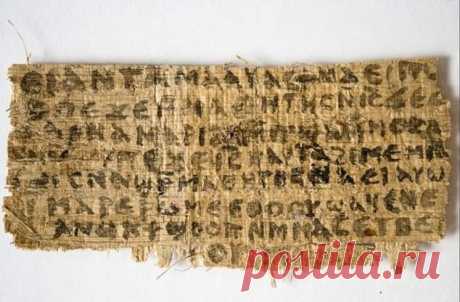 ⲉⲓ ⲁⲛ ⲧⲁⲙⲁⲁⲩ ⲁⲥϯ ⲛⲁⲉⲓ ⲡ
ⲡⲉϫⲉ ⲙⲙⲁⲑⲏⲧⲏⲥ ⲛⲓ̅ⲥ̅ ϫⲉ ⲥ
ⲁⲣⲛⲁ ⲙⲁⲣⲓⲁⲙ ⲙⲡϣⲁ ⲙⲙⲟⲥ ⲁ
ⲡⲉϫⲉ ⲓ̅ⲥ̅ ⲛⲁⲩ ⲧⲁϩⲓⲙⲉ ⲙⲛ
ⲥⲛⲁϣⲣⲙⲁⲑⲏⲧⲏⲥ ⲛⲁⲉⲓ ⲁⲩⲱ
ⲙⲁⲣⲉⲣⲱⲙⲉ ⲉⲑⲟⲟⲩ ϣⲁϥⲉ ⲛⲉ
ⲁⲛⲟⲕ ϯϣⲟⲟⲡ ⲛⲙⲙⲁⲥ ⲉⲧⲃⲉ
postila.ru